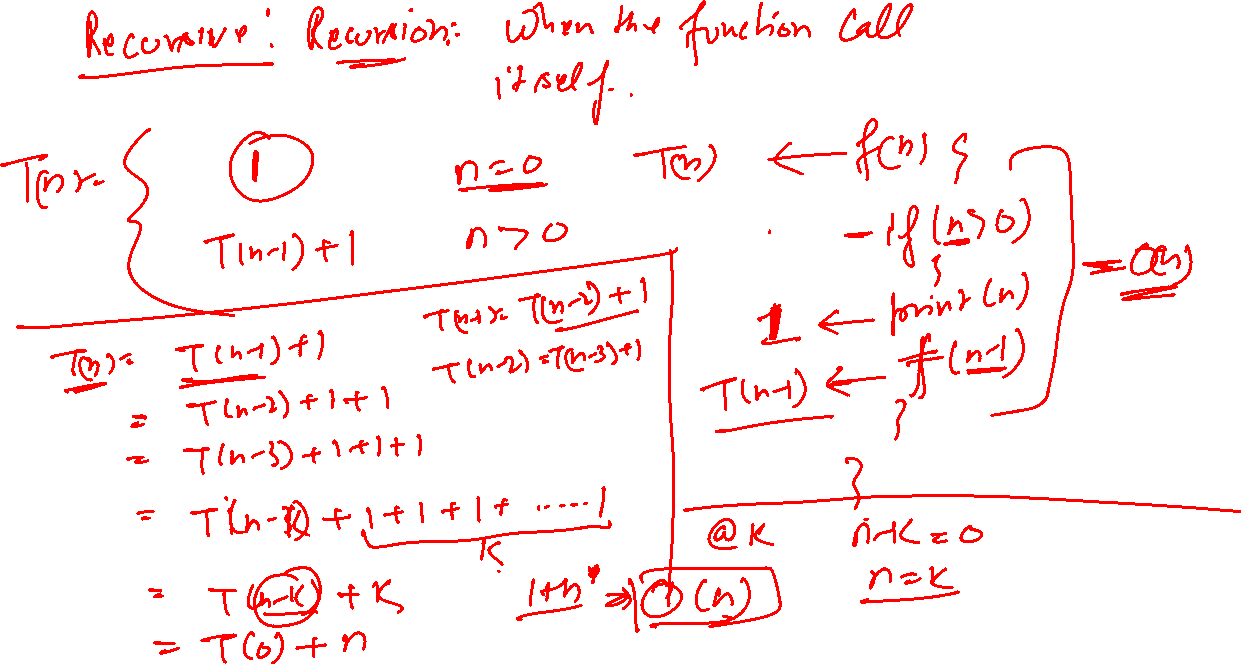 Recursive: Recursion: When the function call
itself.
T(n) = { 1 n=0
T(n-1)+1 n>0
T(n) ← f(n) {
- if (n>0)
{
1 ← print(n)
T(n-1) ← f(n-1)
}
}
= O(n)
T(n) = T(n-1)+1
= T(n-2)+1+1
= T(n-3)+1+1+1
= T(n-k)+1+1+1+.....1
k
= T(n-k)+k
= T(0)+n
T(n-1) = T(n-2)+1
T(n-2) = T(n-3)+1
1+n ⇒ O(n)
@k n-k=0
n=k